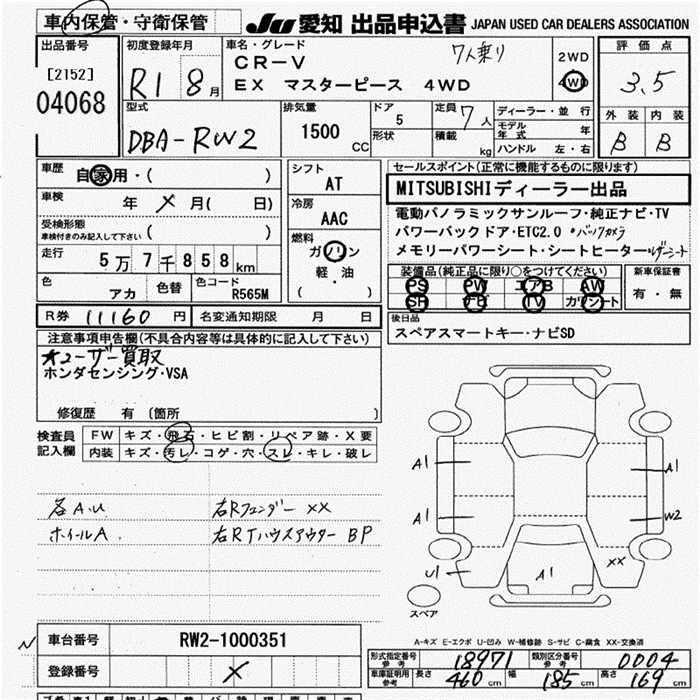 車内保管・守衛保管
JU 愛知 出品申込書 JAPAN USED CAR DEALERS ASSOCIATION
出品番号
[2152]
04068
初度登録年月
R1 8月
車名・グレード
7人乗り
CR-V
EX マスターピース 4WD
2WD
4WD
評価点
3.5
外装 内装
B B
型式
DBA-RW2
排気量
1500 CC
ドア
5
形状
定員
7人
積載
kg
ディーラー・並行
モデル年式 年
ハンドル 左・右
車歴
自家用・( )
車検
年 X 月( 日)
受検形態
車検付きのみ記入して下さい ( )
走行
5万7千858km
色
アカ
色替
色コード
R565M
シフト
AT
冷房
AAC
燃料
ガソリン
軽・油
( )
セールスポイント(正常に機能するものに限ります)
MITSUBISHIディーラー出品
電動パノラミックサンルーフ・純正ナビ・TV
パワーバックドア・ETC2.0 ・バックカメラ
メモリーパワーシート・シートヒーター・レザーシート
装備品(純正品に限り○をつけてください)
PS PW エアB AW
SR ナビ TV カワシート
新車保証書
有・無
R券 11160円
名変通知期限 月 日
後日品
スペアスマートキー・ナビSD
注意事項申告欄(不具合内容等は具体的に記入して下さい)
ユーザー買取
ホンダセンシング・VSA
修復歴 有 〔箇所 〕
検査員
記入欄
FW キズ・飛石・ヒビ割・リペア跡・X要
内装 キズ・汚レ・コゲ・穴・スレ・キレ・破レ
各A.U
ホイールA
右Rフェンダー XX
右RTハウスアウター BP
A1
A1
A1
W2
U1
A1
XX
スペア
A-キズ E-エクボ U-凹み W-補修跡 S-サビ C-腐食 XX-交換済
N
車台番号 RW2-1000351
登録番号 X
形式指定番号 参考 18971
類別区分番号 参考 0004
車庫証明用 参考 長さ 460cm 幅 185cm 高さ 169cm